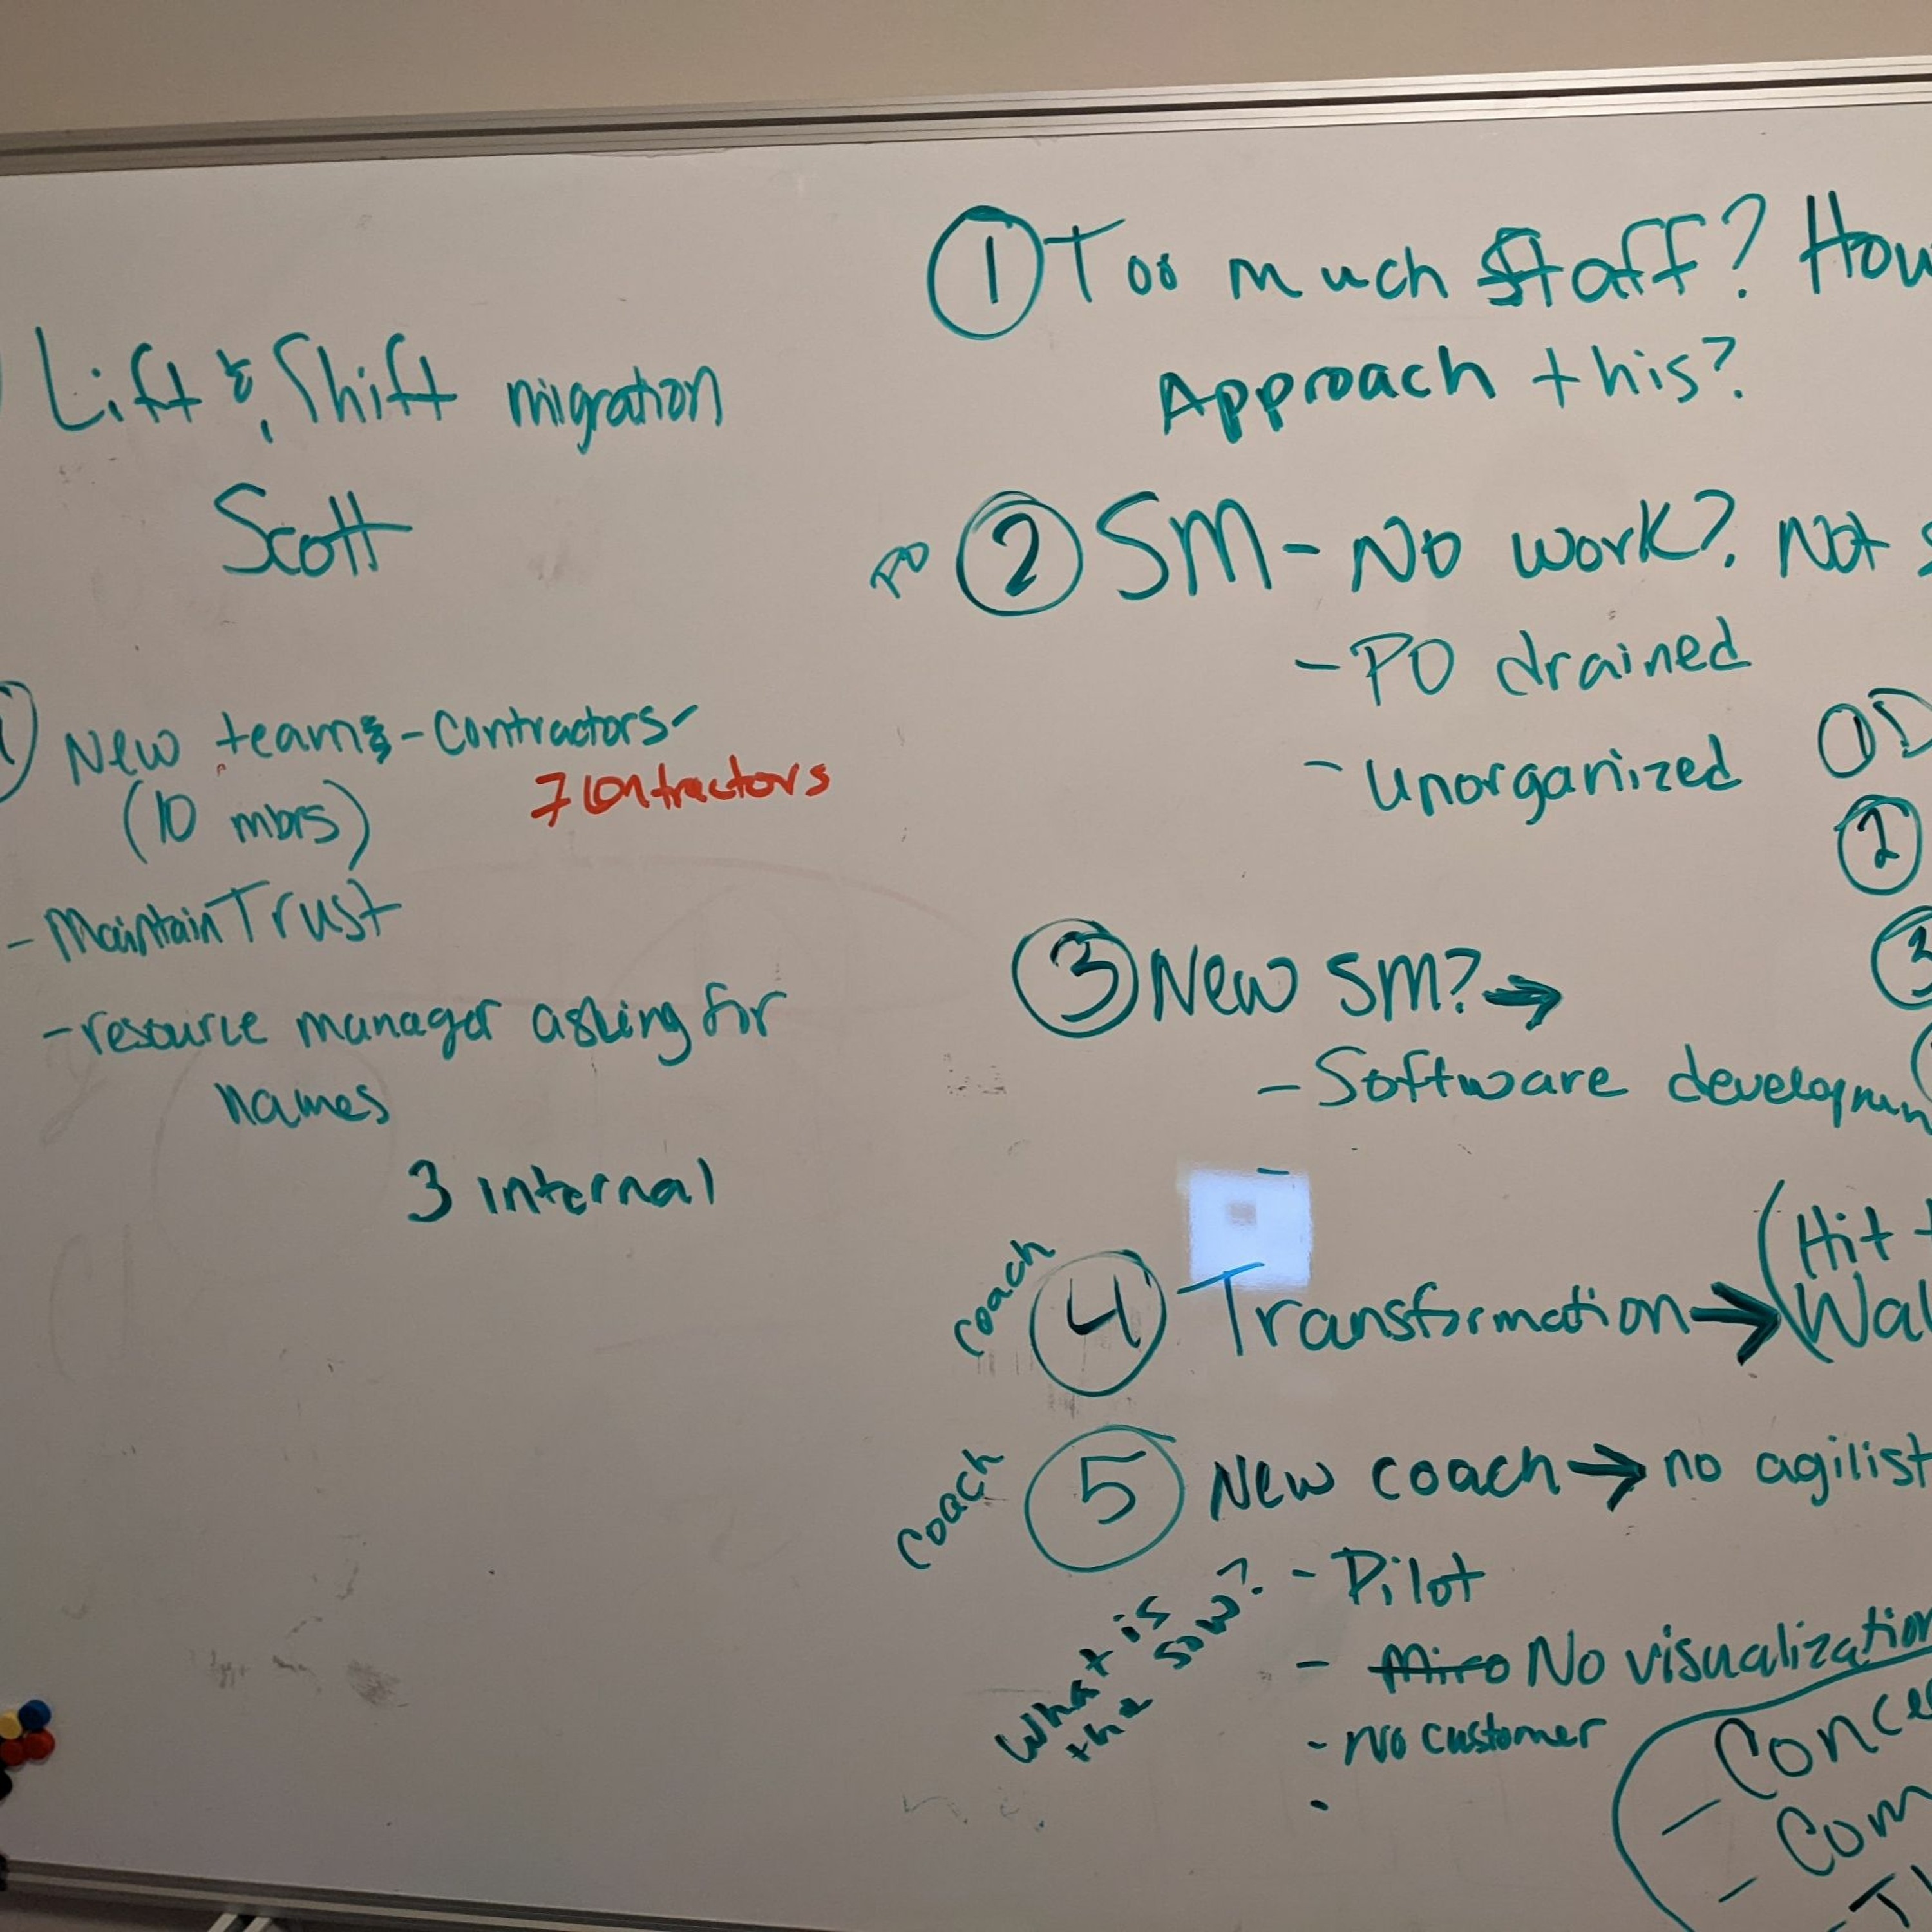 Lift & Shift migration
Scott
New teams - contractors -
7 contractors
(10 mbrs)
- Maintain Trust
- resource manager asking for
names
3 internal
1 Too much staff? How
Approach this?
PO 2 SM - No work?. Not
- PO drained
- Unorganized
1
2
3
3 New SM? →
- Software
-
Coach 4 Transformation → (Hit
Coach 5 New coach → no agilist
- Pilot
What is
the SOW?
- Miro No visualization
- No customer